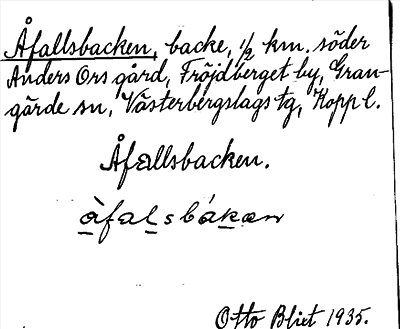 Åfallsbacken, backe, 1/2 km. söder
Anders Ors gård, Fröjdberget by, Gran-
gärde sn, Västerbergslags tg, Kopp l.
Åfallsbacken.
åfalsbakan
Otto Blixt 1935.